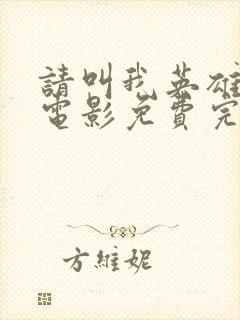 請叫我英雄
電影免費完
方維妮